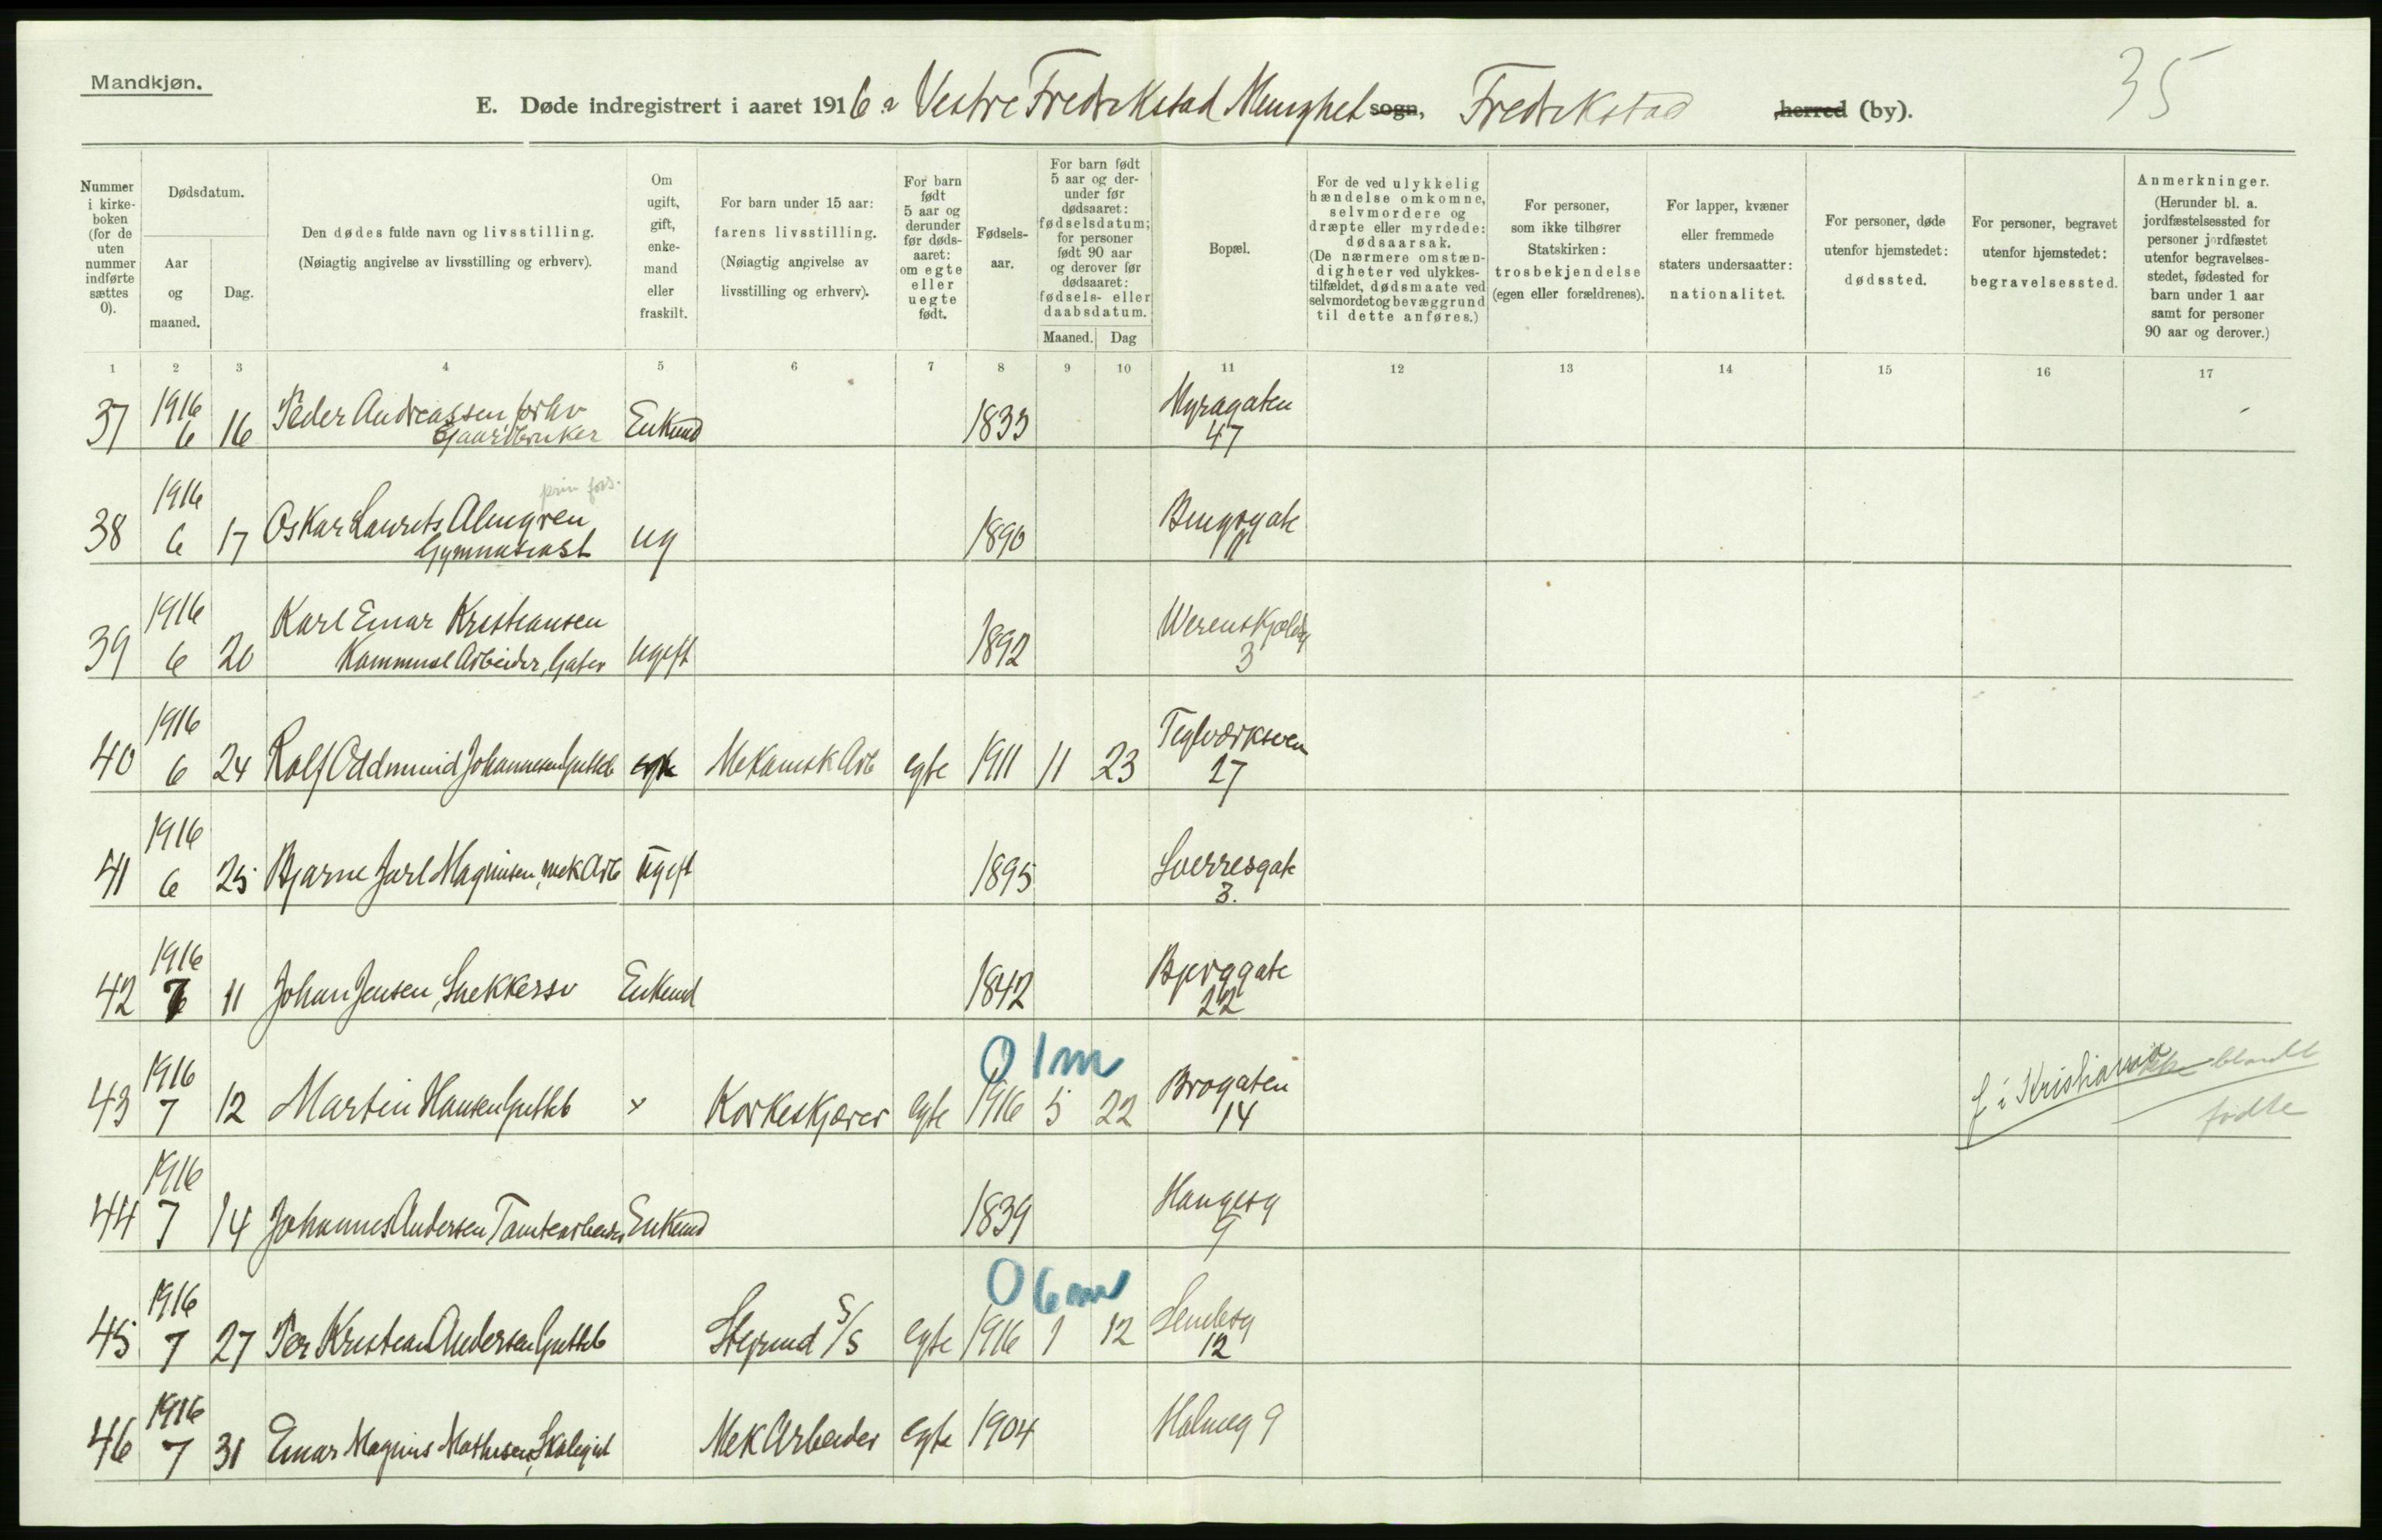 Mandkjøn.
35
E. Døde indregistrert i aaret 1916 i Vestre Fredrikstad Menighet sogn, Fredrikstad herred (by).
Nummer i kirkeboken (for de uten nummer indførte sættes 0).
Dødsdatum.
Aar og maaned.
Dag.
Den dødes fulde navn og livsstilling.
(Nøiagtig angivelse av livsstilling og erhverv).
Om ugift, gift, enkemand eller fraskilt.
For barn under 15 aar: farens livsstilling.
(Nøiagtig angivelse av livsstilling og erhverv).
For barn født 5 aar og derunder før dødsaaret: om egte eller uegte født.
Fødselsaar.
For barn født 5 aar og derunder før dødsaaret: fødselsdatum; for personer født 90 aar og derover før dødsaaret: fødsels- eller daabsdatum.
Maaned.
Dag
Bopæl.
For de ved ulykkelig hændelse omkomne, selvmordere og dræpte eller myrdede: dødsaarsak.
(De nærmere omstændigheter ved ulykkestilfældet, dødsmaate ved selvmordet og bevæggrund til dette anføres.)
For personer, som ikke tilhører Statskirken: trosbekjendelse (egen eller forældrenes).
For lapper, kvæner eller fremmede staters undersaatter: nationalitet.
For personer, døde utenfor hjemstedet: dødssted.
For personer, begravet utenfor hjemstedet: begravelsessted.
Anmerkninger.
(Herunder bl. a. jordfæstelsessted for personer jordfæstet utenfor begravelsesstedet, fødested for barn under 1 aar samt for personer 90 aar og derover.)
1 2 3 4 5 6 7 8 9 10 11 12 13 14 15 16 17
37 1916 6 16 Peder Andreassen, forhv Gaardbruker Enkemd 1833 Myragaten 47
38 1916 6 17 Oskar Laurits Almgren Gymnasiast ug 1890
39 1916 6 20 Karl Einar Kristiansen Kommunl Arbeider, Gater ugift 1892 Werenskjoldsg 3
40 1916 6 24 Rolf Oddmund Johannesen Gutteb egte Mekanisk Arb egte 1911 11 23 Teglverksveien 27
41 1916 6 25 Bjarne Jarl Magnusen, mek Arb Ugift 1895 Sverresgate 3.
42 1916 7 11 Johan Jensen, Snekkersv Enkemd 1842 Bjerggate 22
0 1 m
43 1916 7 12 Martin Hansen Gutteb × Korkeskjærer egte 1916 5 22 Brogaten 14 f i Kristiania ikke blandt fødte
44 1916 7 14 Johannes Andersen Tomtearbeider Enkemd 1839 Haugesg 9
0 6 m
45 1916 7 27 Per Kristian Andersen Gutteb S/S egte 1916 1 12 12
46 1916 7 31 Einar Magnus Mathisen, Skolegut Mek Arbeider egte 1904 Holmeg 9